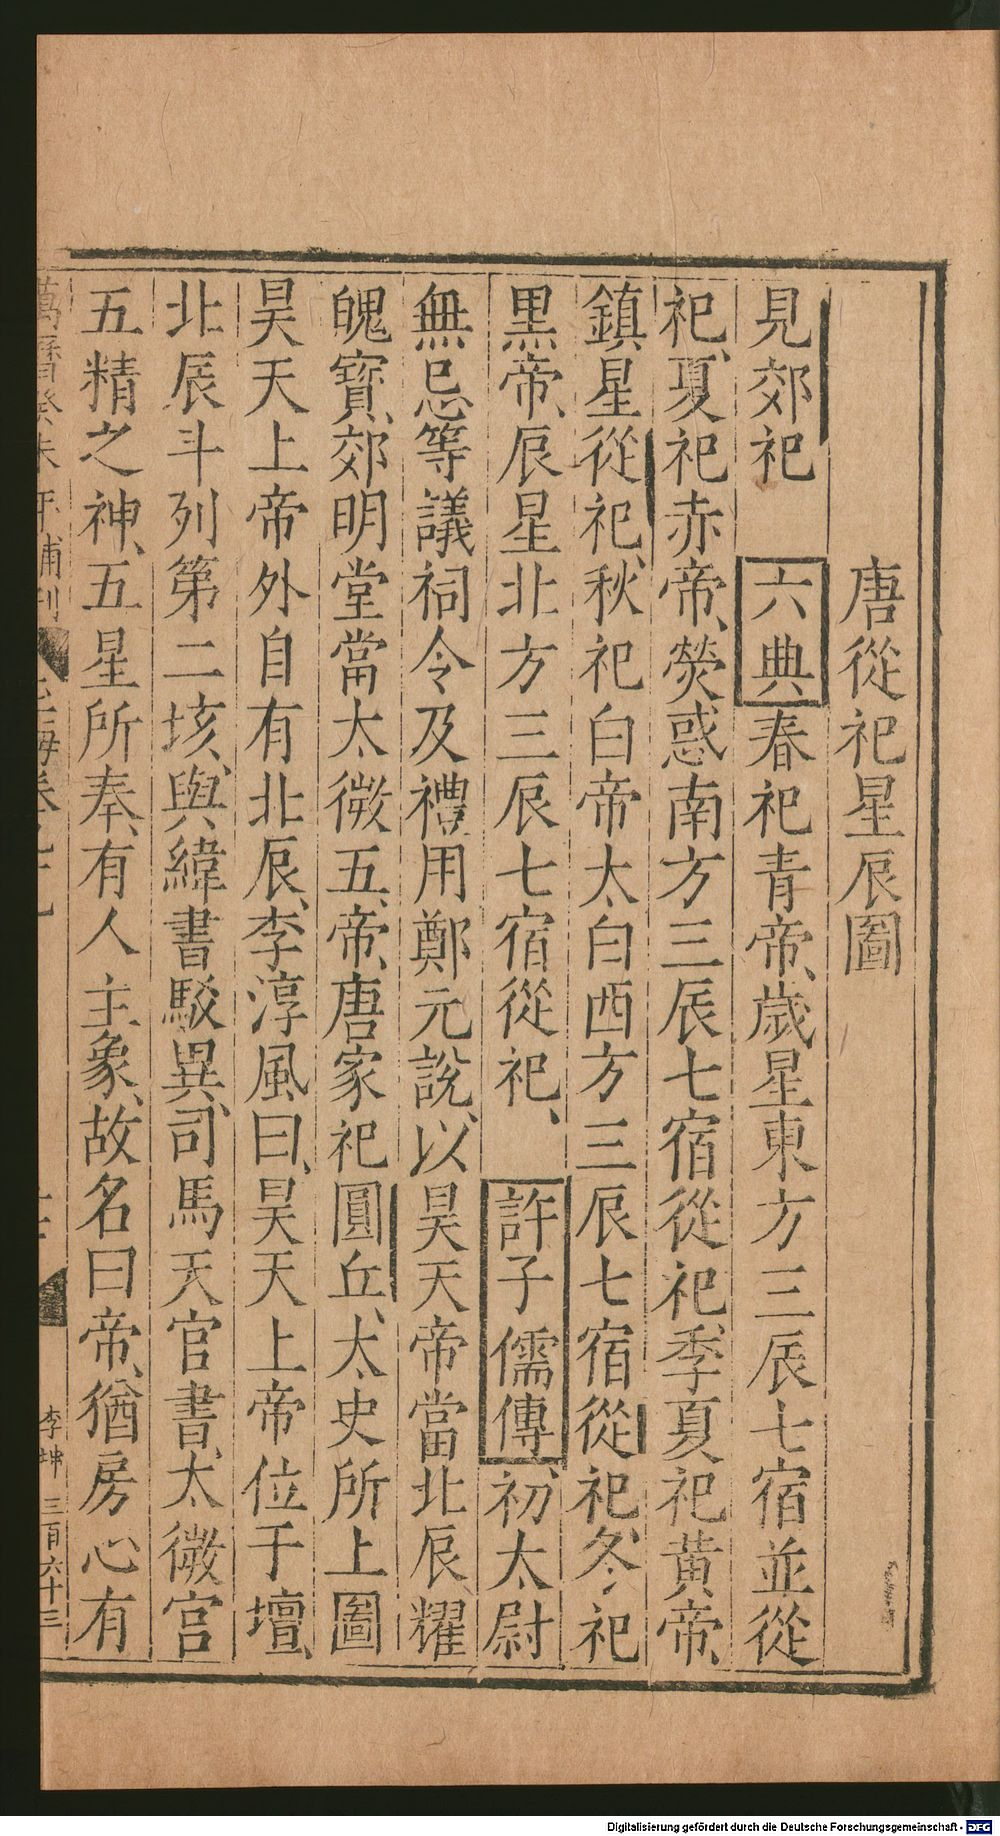 唐從祀星辰圖
見郊祀　六典春祀青帝、歲星東方三辰七宿並從
祀、夏祀赤帝、熒惑南方三辰七宿從祀、季夏祀黃帝、
鎮星從祀、秋祀白帝太白西方三辰七宿從祀、冬祀
黑帝、辰星北方三辰七宿從祀、許子儒傳、初太尉
無忌等議祠令及禮用鄭元說、以昊天帝當北辰耀
魄寶、郊明堂當太微五帝、唐家祀圓丘、太史所上圖
昊天上帝外自有北辰、李淳風曰、昊天上帝位于壇、
北辰斗列第二垓、與緯書駮異、司馬天官書、太微宮
五精之神、五星所奉、有人主象、故名曰帝、猶房心有
萬曆癸未年補刊
玉海卷
李坤 三百六十三
Digitalisierung gefördert durch die Deutsche Forschungsgemeinschaft - DFG